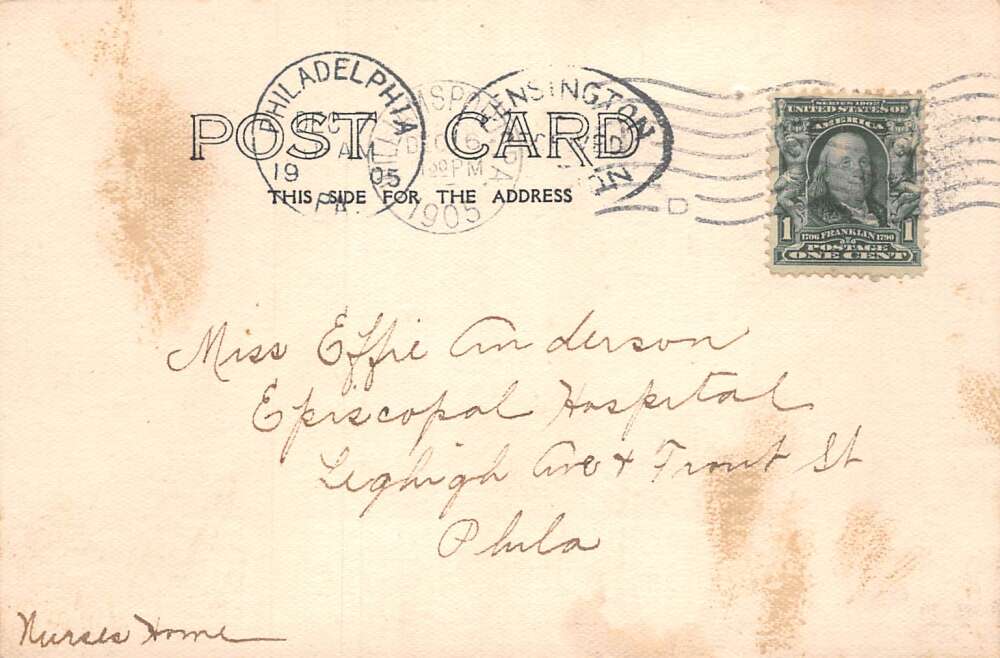 PHILADELPHIA
DEC 7
AM
19 05
PA.
1 30 PM
1905
KENSINGTON
D
POST CARD
THIS SIDE FOR THE ADDRESS
SERIES 1902
UNITED STATES OF
AMERICA
1 1706 FRANKLIN 1790 1
POSTAGE
ONE CENT
Miss Effie Anderson
Episcopal Hospital
Leghigh Ave & Front St
Phila
Nurses Home